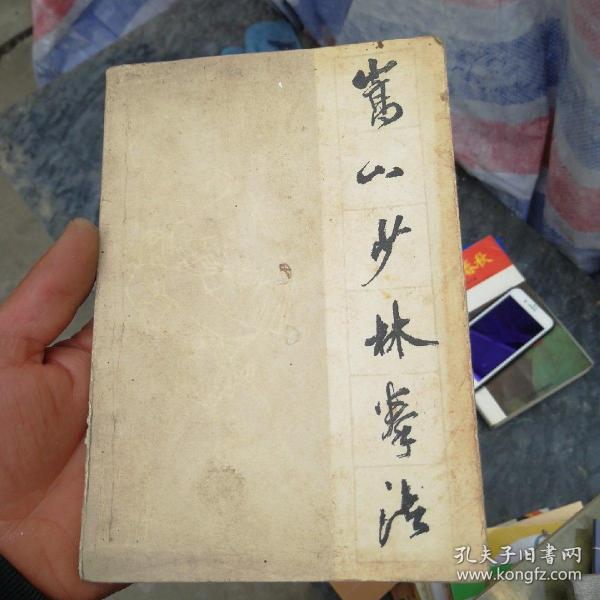 嵩山少林拳法
春秋
孔夫子旧书网
www.kongfz.com